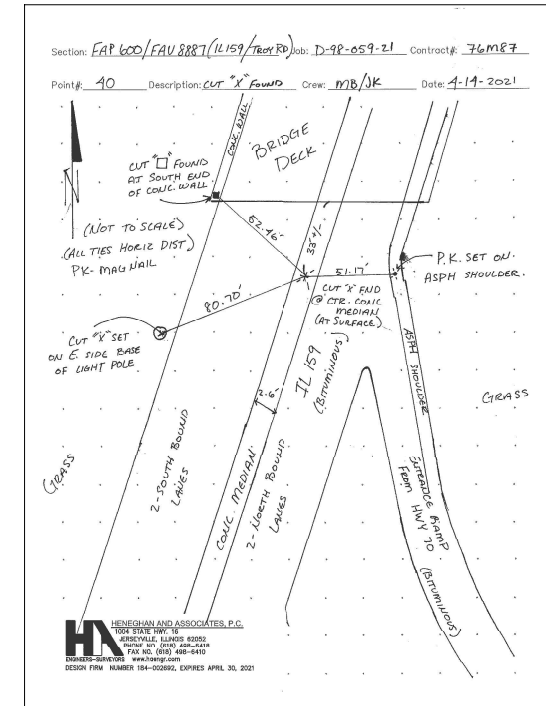 Section: FAP 600/FAU 8887 (IL159/TROY RD) Job: D-98-059-21 Contract#: 76M87
Point#: 40 Description: CUT "X" FOUND Crew: MB/JK Date: 4-14-2021
CONC. WALL
BRIDGE
DECK
CUT "□" FOUND
AT SOUTH END
OF CONC. WALL
N
(NOT TO SCALE)
(ALL TIES HORIZ DIST)
PK- MAG NAIL
62.46'
33'+/-
51.17'
P.K. SET ON
ASPH SHOULDER.
80.70'
CUT "X" FND
@ CTR. CONC
MEDIAN
(AT SURFACE)
CUT "X" SET
ON E. SIDE BASE
OF LIGHT POLE
IL 159
(BITUMINOUS)
ASPH SHOULDER
GRASS
2.6'
GRASS
2-SOUTH BOUND
LANES
CONC. MEDIAN
2-NORTH BOUND
LANES
ENTRANCE RAMP
FROM HWY 70
(BITUMINOUS)
HA
HENEGHAN AND ASSOCIATES, P.C.
1004 STATE HWY. 16
JERSEYVILLE, ILLINOIS 62052
PHONE NO. (618) 498-6418
FAX NO. (618) 498-6410
ENGINEERS-SURVEYORS www.haengr.com
DESIGN FIRM NUMBER 184-002692, EXPIRES APRIL 30, 2021